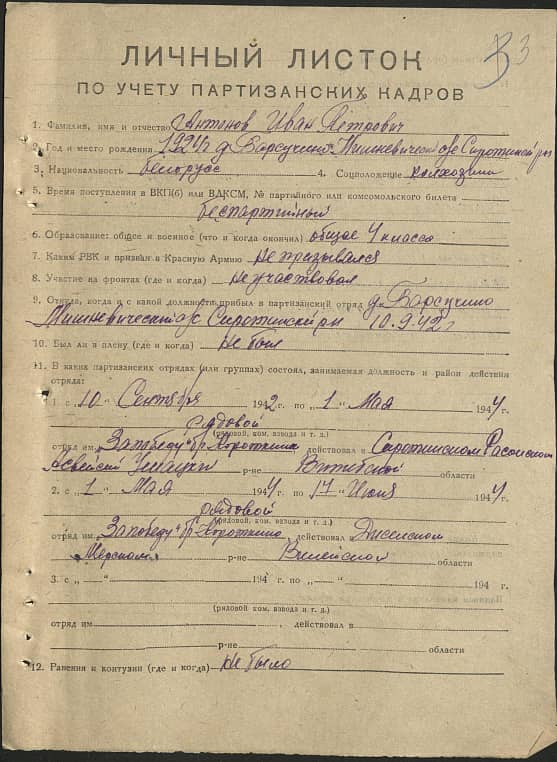 33
ЛИЧНЫЙ ЛИСТОК
ПО УЧЕТУ ПАРТИЗАНСКИХ КАДРОВ
1. Фамилия, имя и отчество Антонов Иван Петрович
2. Год и место рождения 1924 г д. Барсучино Мишневический с/с Сиротинский р-н
3. Национальность белорус 4. Соцположение колхозник
5. Время поступления в ВКП(б) или ВЛКСМ, № партийного или комсомольского билета
беспартийный
6. Образование: общее и военное (что и когда окончил) общее 4 класса
7. Каким РВК и призван в Красную Армию не призывался
8. Участие на фронтах (где и когда) не участвовал
9. Откуда, когда и с какой должности прибыл в партизанский отряд д. Барсучино
Мишневический с/с Сиротинский р-н 10.9.42 г
10. Был ли в плену (где и когда) не был
11. В каких партизанских отрядах (или группах) состоял, занимаемая должность и район действия
отряда:
1. с „10" Сентября 1942 г. по „1" Мая 1944 г.
рядовой
(рядовой, ком. взвода и т. д.)
отряд им. За победу бр. Короткина действовал в Сиротинском Расонском
р-не Витебской области
2. с „1" Мая 1944 г. по „17" Июня 1944 г.
рядовой
(рядовой, ком. взвода и т. д.)
отряд им. За победу бр. Короткина действовал Дисненском
р-не Вилейской области
3. с „ " 194 г. по „ " 194 г.
(рядовой ком. взвода и т. д.)
отряд им , действовал в
р-не области
12. Ранения и контузии (где и когда) не было